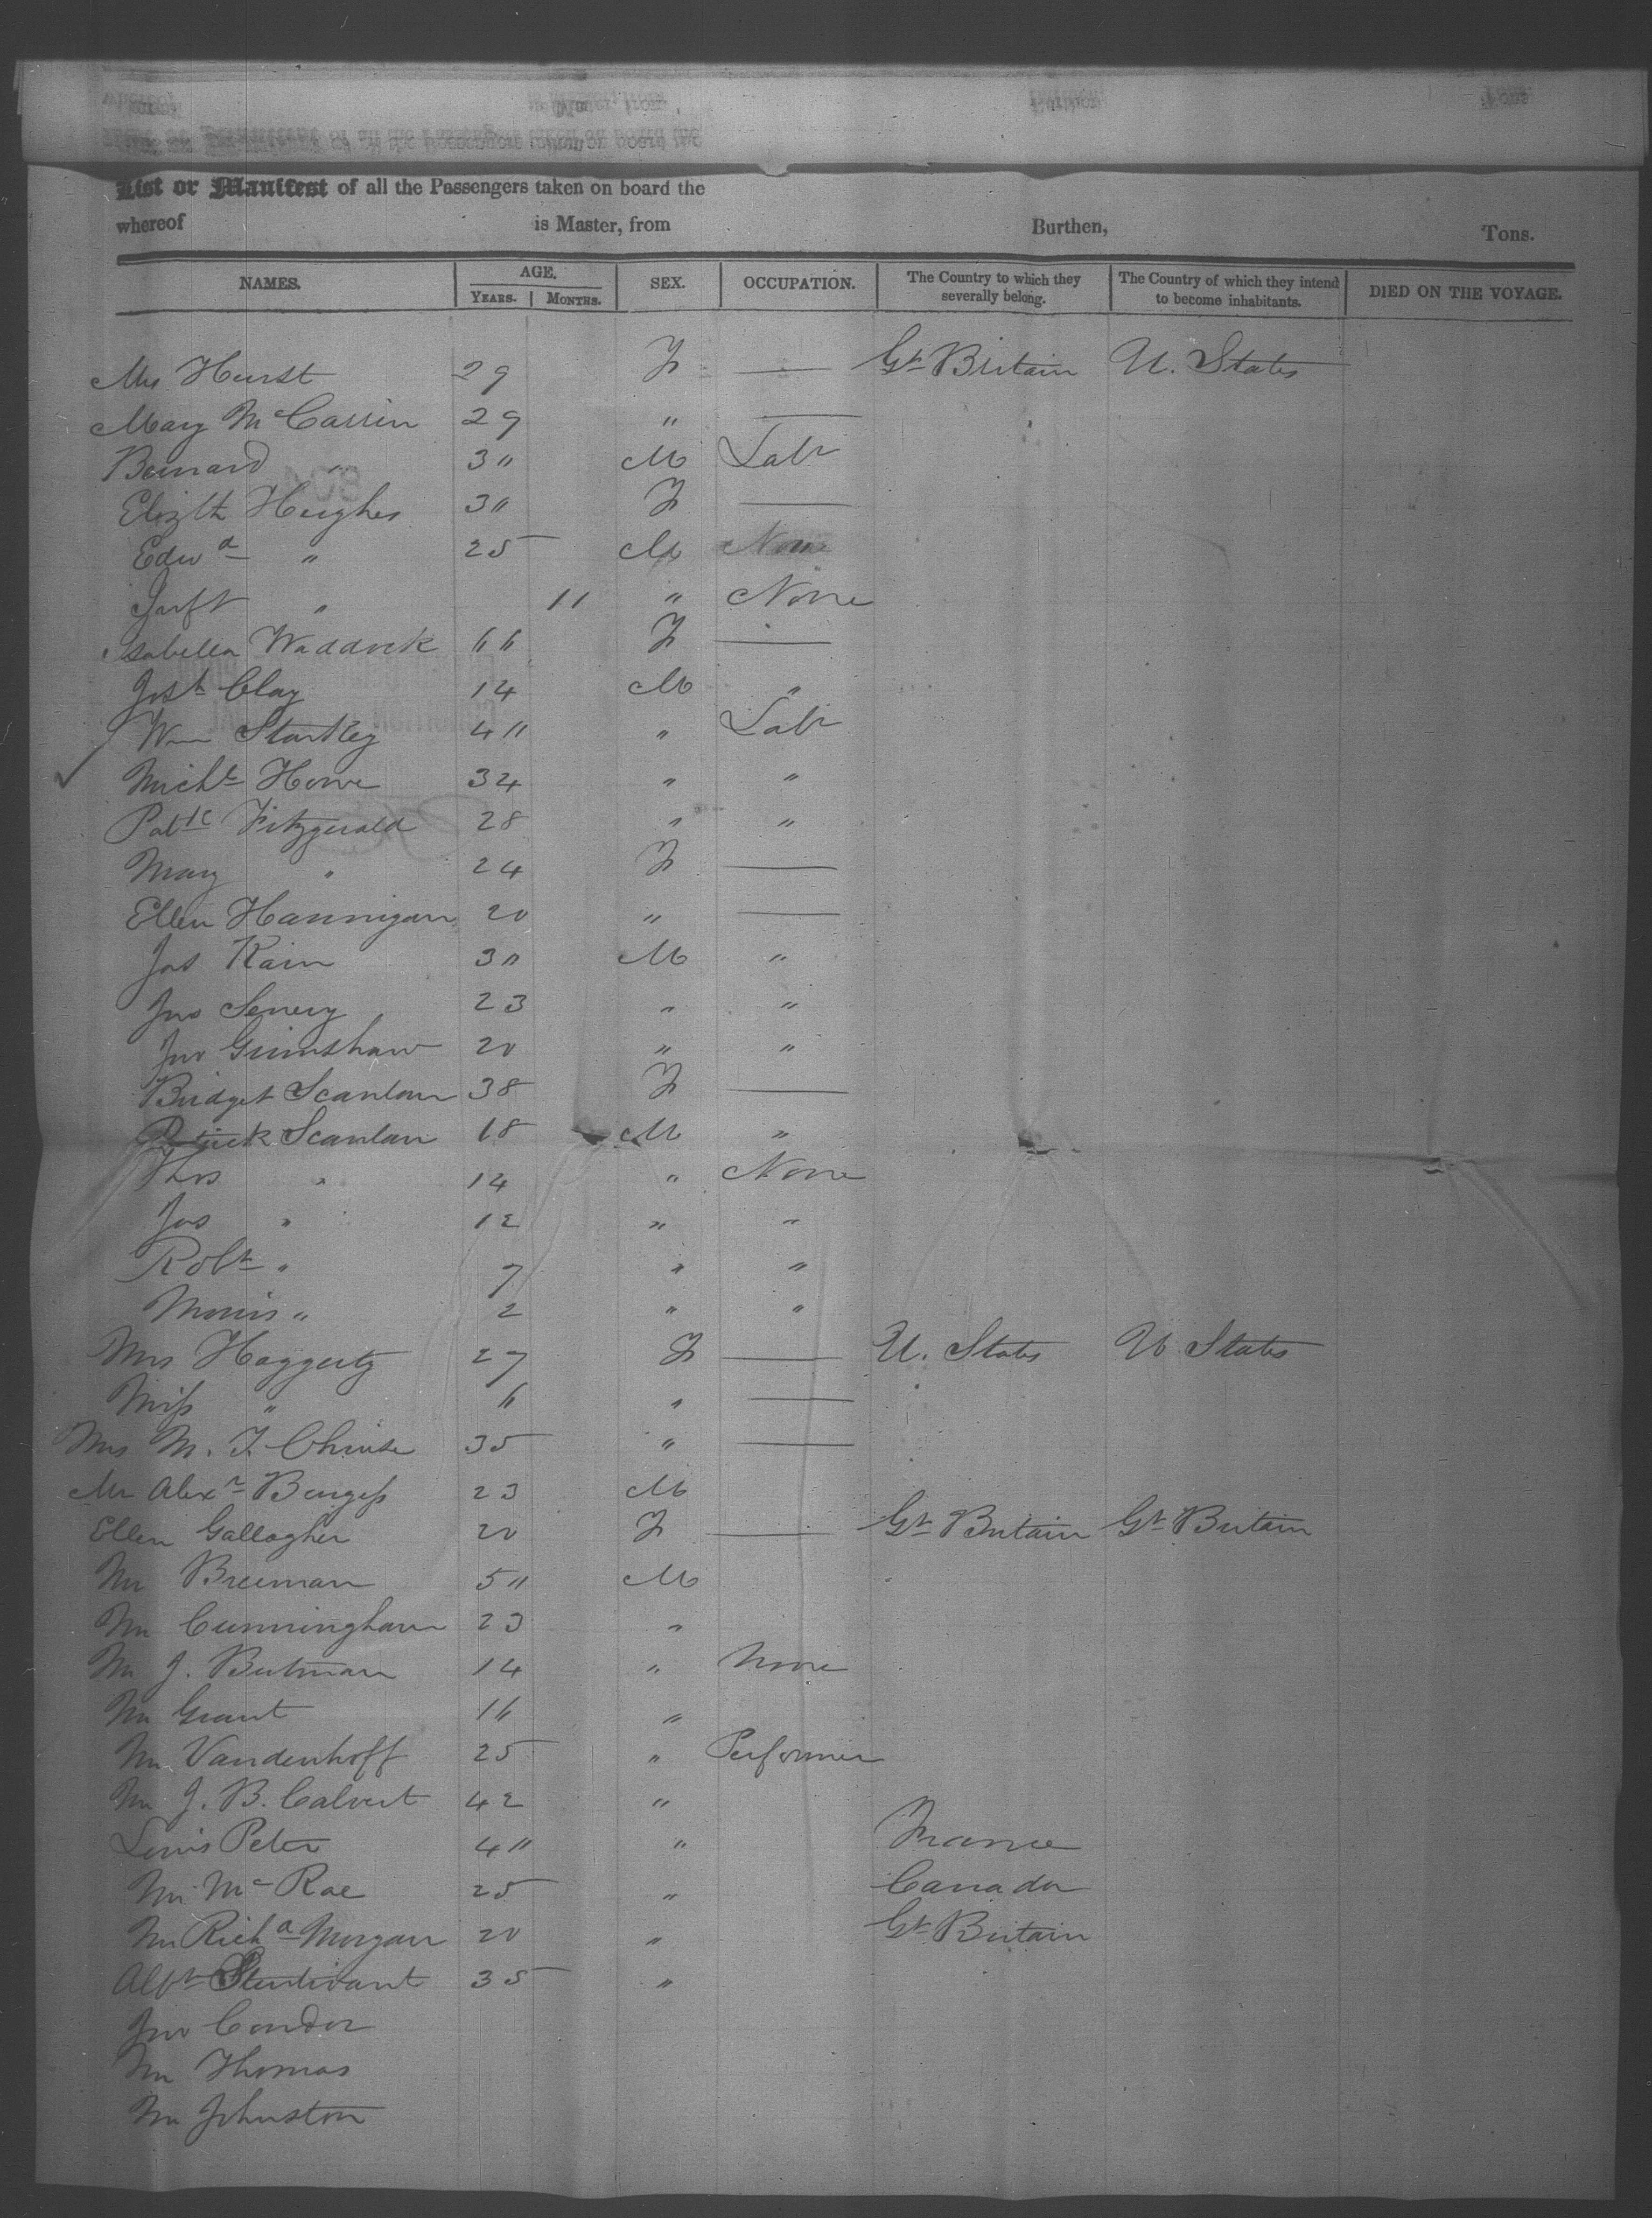 List or Manifest of all the Passengers taken on board the
whereof is Master, from Burthen, Tons.
NAMES. AGE. YEARS. MONTHS. SEX. OCCUPATION. The Country to which they severally belong. The Country of which they intend to become inhabitants. DIED ON THE VOYAGE.
Mrs Hurst 29 F — Gt Britain U. States
Mary McCassin 29 " —
Bernard " 30 M Labr
Elizth Hughes 30 F —
Edwd " 25 M None
Inft " 11 " None
Isabella Waddock 66 F —
Josh Clay 14 M "
Wm Startley 40 " Labr
Michl Howe 34 " "
Patk Fitzgerald 28 " "
Mary " 24 F —
Ellen Hannigan 20 " —
Jas Kain 30 M "
Jno Senery 23 " "
Jno Grimshaw 20 " "
Bridget Scanlan 38 F —
Patrick Scanlan 18 M "
Thos " 14 " None
Jas " 12 " "
Robt " 7 " "
Morris " 2 " "
Mrs Haggerty 27 F — U. States U States
Miss " 6 " —
Mrs M. F. 35 " —
Mr Alexr Burgess 23 M
Ellen Gallagher 20 F — Gt Britain Gt Britain
Mr Breeman 50 M
Mr Cunningham 23 "
Mr J. Butman 14 " None
Mr Grant 16 "
Mr Vandenhoff 25 " Performer
Mr J. B. Calvert 42 "
Louis Peter 40 " France
Mr McRae 25 " Canada
Mr Richd Morgan 20 " Gt Britain
Albt Sturdivant 35 "
Jno Condor
Mr Thomas
Mr Johnston